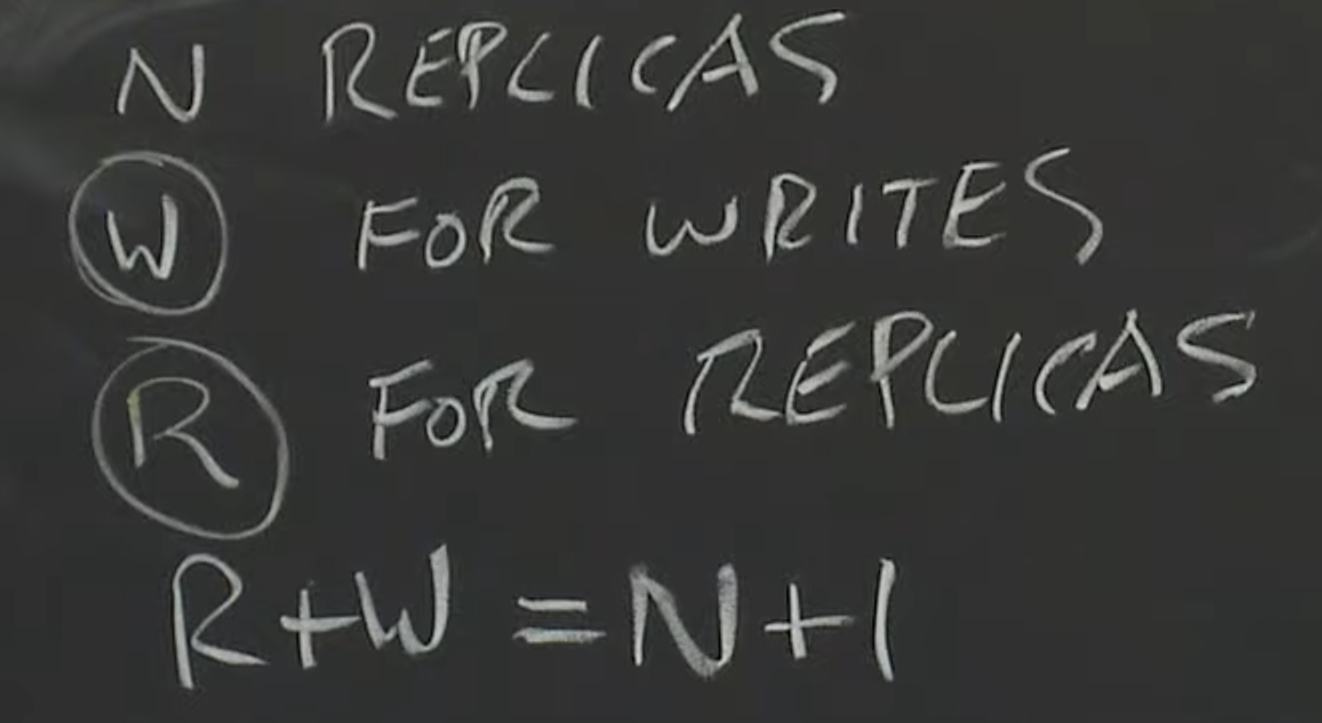 N REPLICAS
W FOR WRITES
R FOR REPLICAS
R+W=N+1